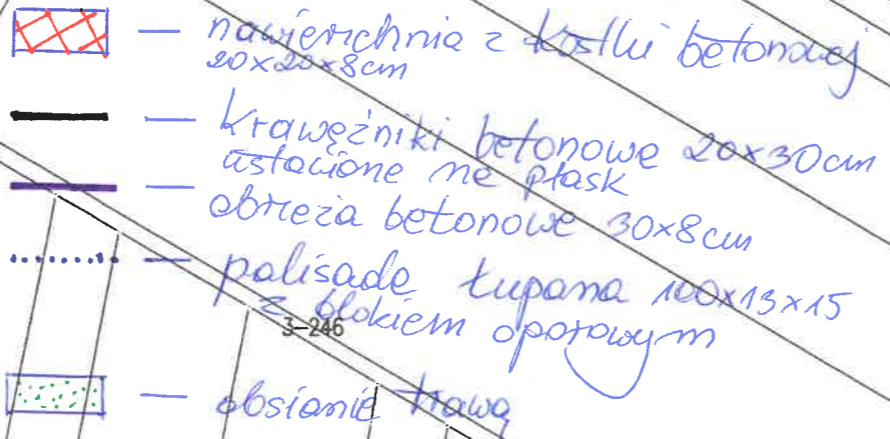 — nawierzchnia z kostki betonowej
20x20x8cm
— krawężniki betonowe 20x30cm
ustawione na płask
— obrzeża betonowe 30x8cm
— palisada łupana 100x13x15
z blokiem oporowym
3-246
— obsianie trawą